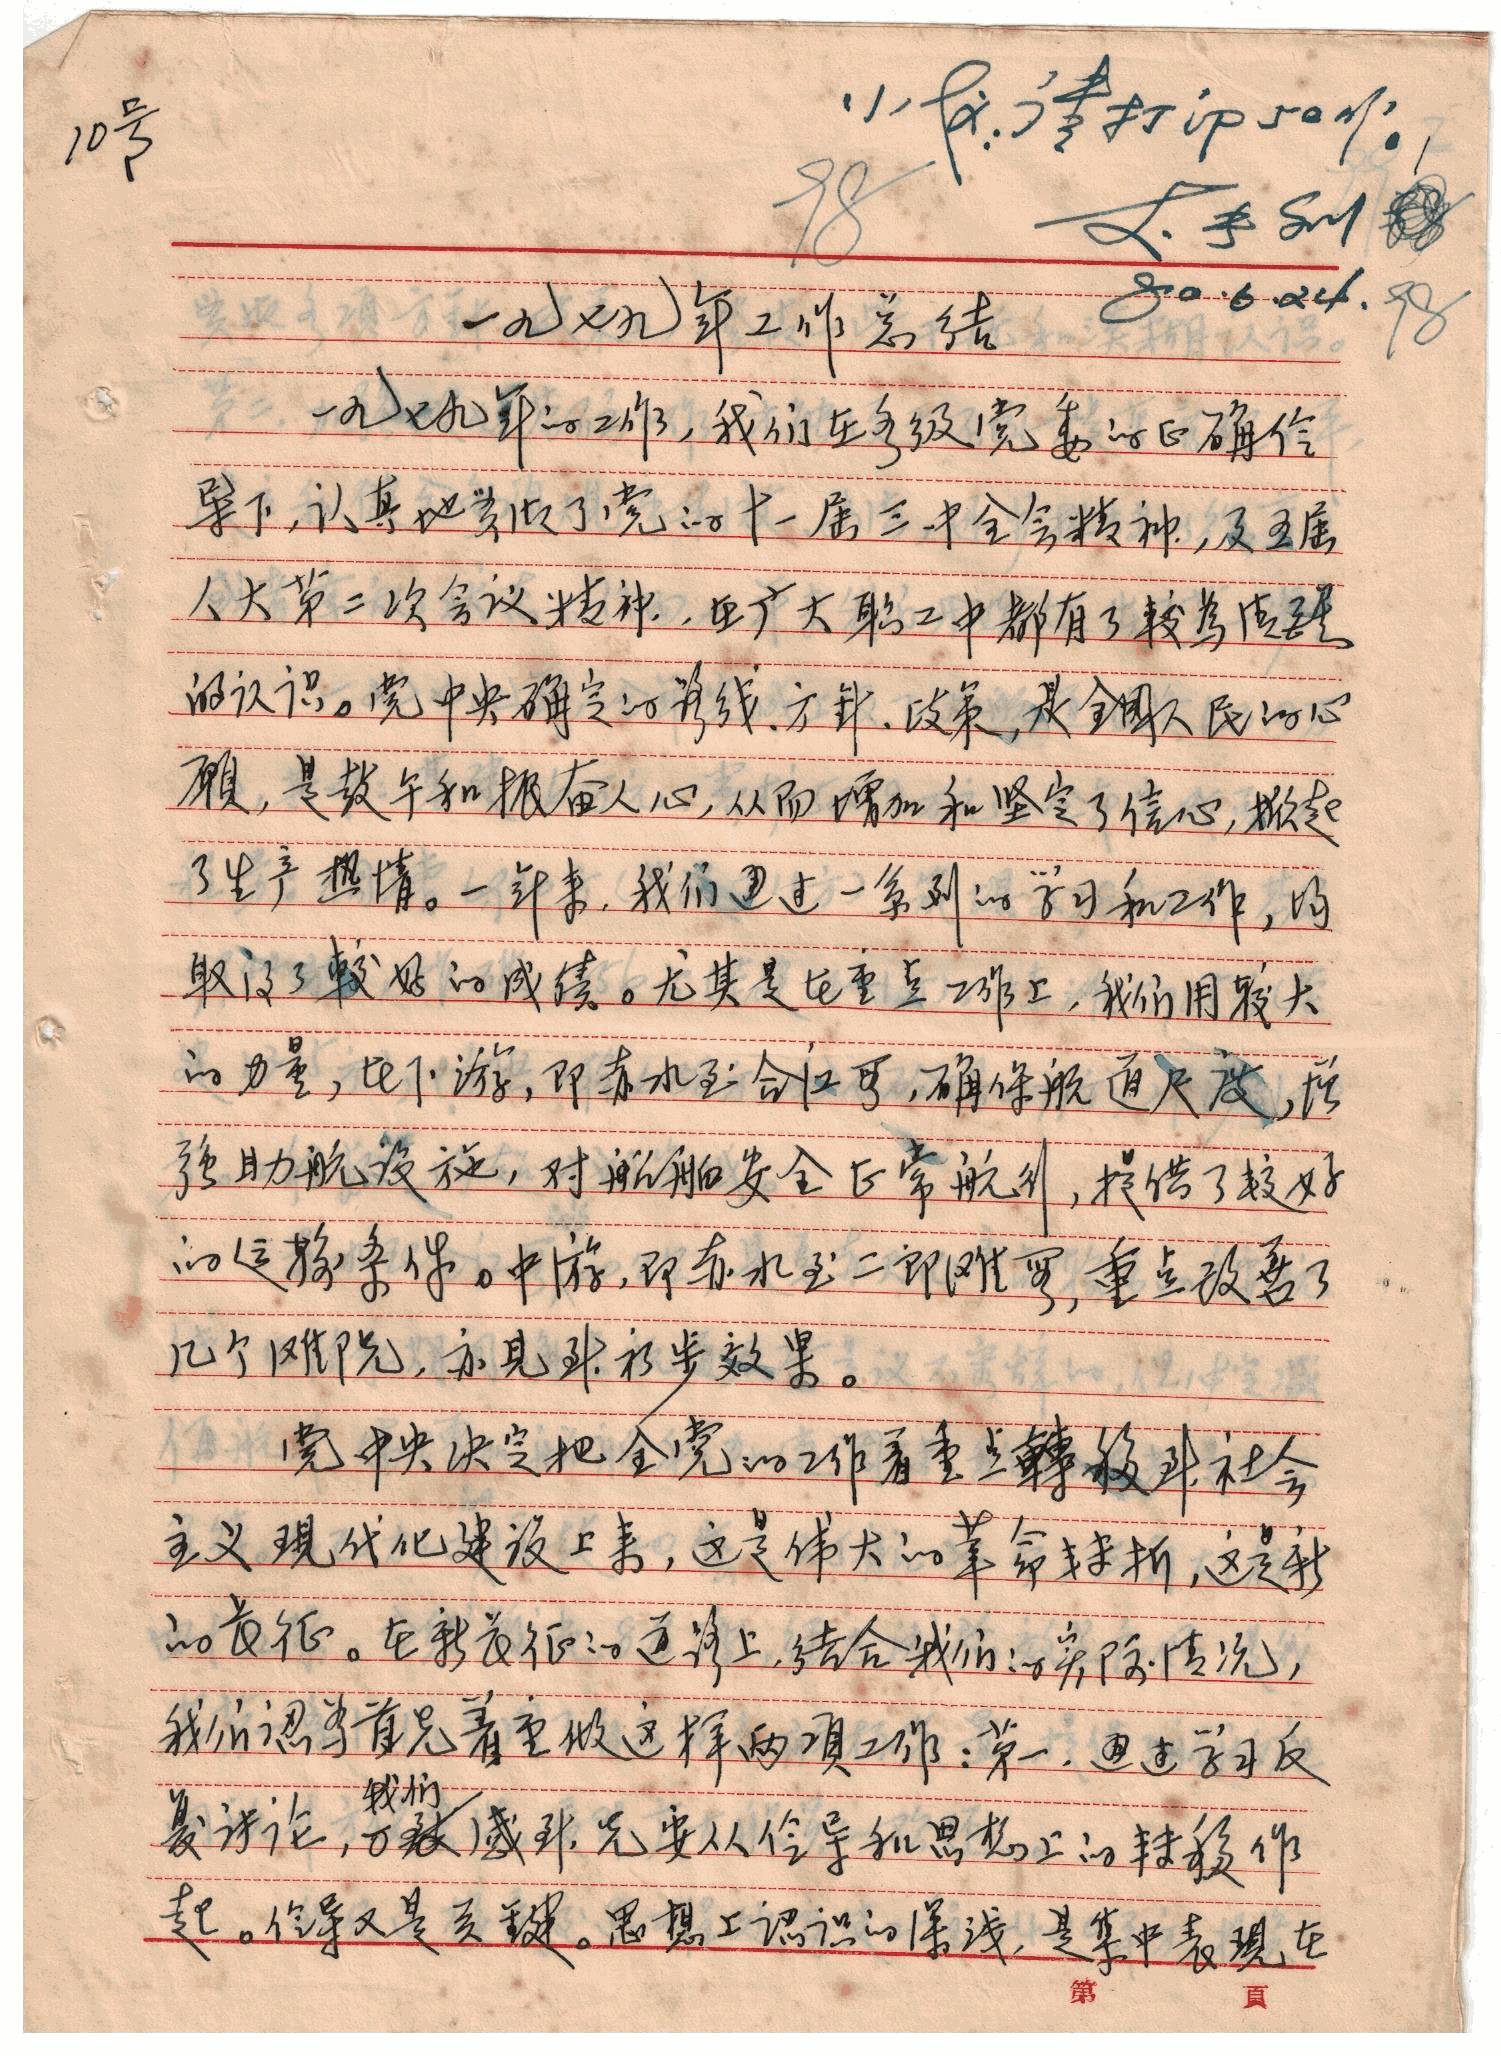 10号
小成:请打印50份。
98
80.6.24.
98
一九七九年工作总结
一九七九年的工作,我们在各级党委的正确领
导下,认真地贯彻了党的十一届三中全会精神,及五届
人大第二次会议精神,在广大职工中都有了较为清醒
的认识。党中央确定的路线、方针、政策,是全国人民的心
愿,是鼓午和振奋人心,从而增加和坚定了信心,掀起
了生产热情。一年来,我们通过一系列的学习和工作,均
取得了较好的成绩。尤其是在重点工作上,我们用较大
的力量,在下游,即赤水至合江段,确保航道尺度,增
强助航设施,对船舶安全正常航行,提供了较好
的运输条件。中游,即赤水至二郎滩段,重点改善了
几个滩险,亦见到初步效果。
党中央决定把全党的工作着重点轉移到社会
主义現代化建设上来,这是伟大的革命转折,这是新
的長征。在新長征的道路上,结合我们的实际情况,
我们認为首先着重做这样两项工作:第一,通过学习反
我们
复讨论,一致感到,先要从领导和思想上的转移作
起。领导又是关键。思想上認识的深浅,是集中表現在
第 頁